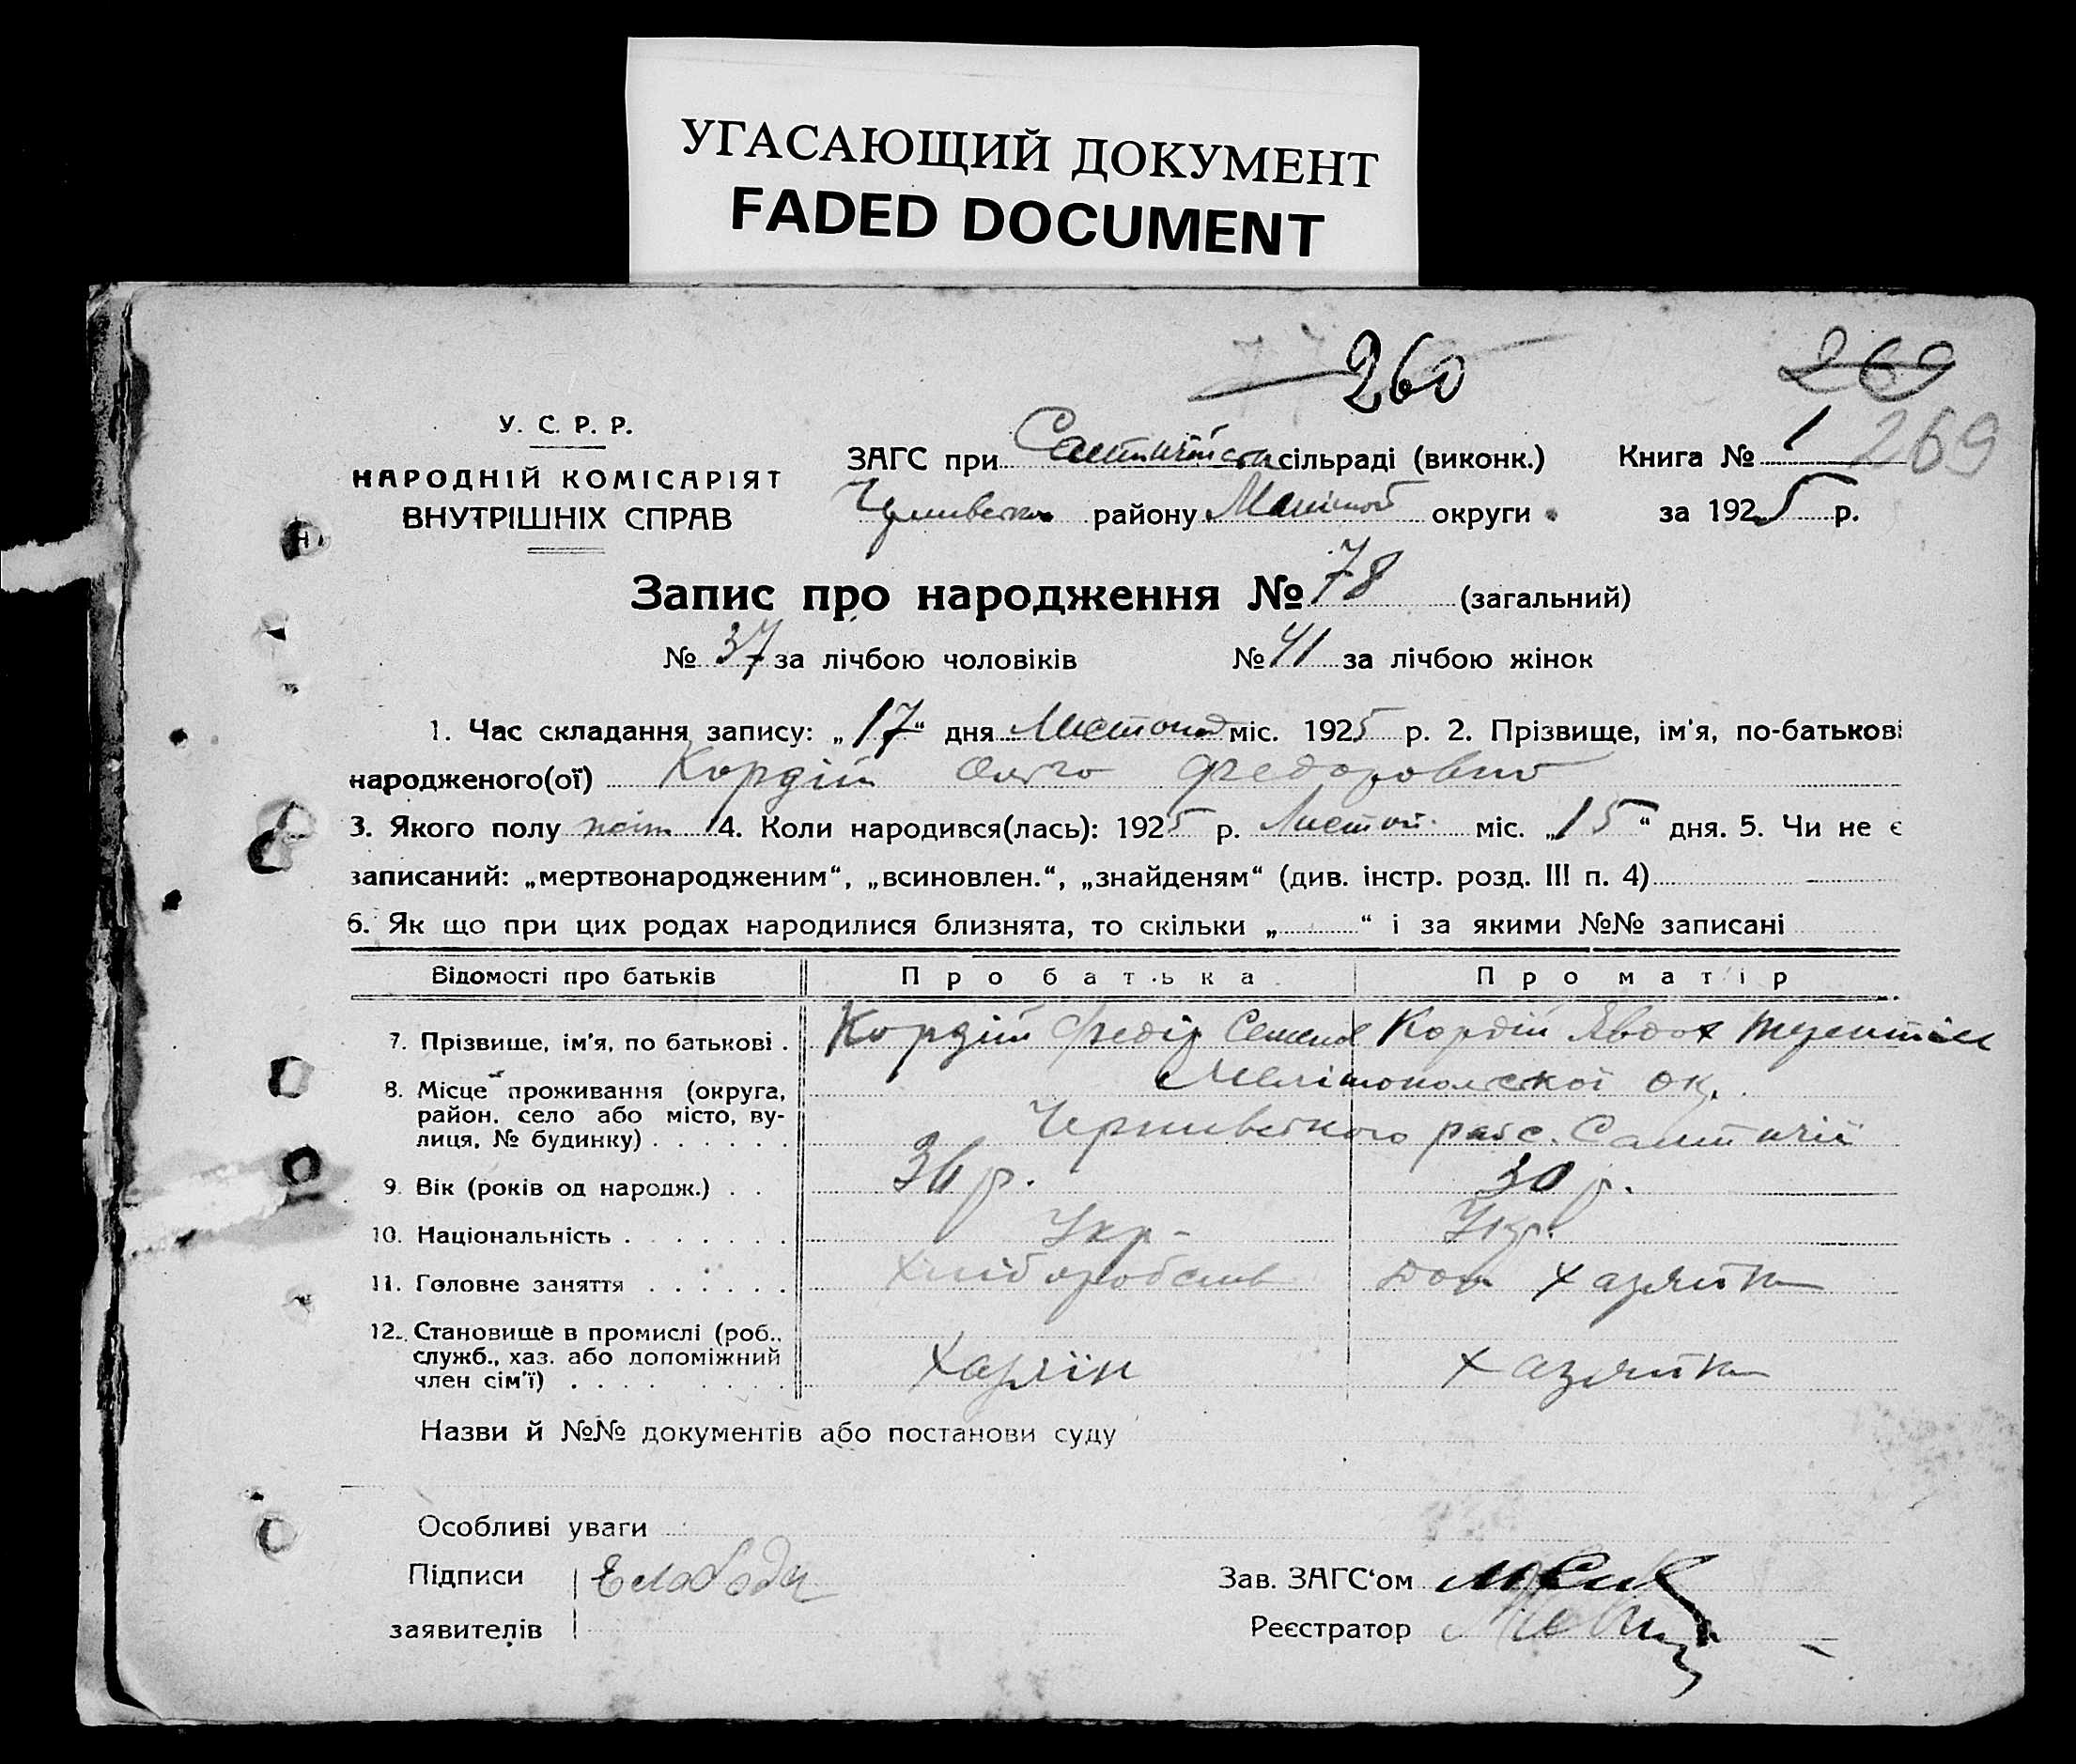 УГАСАЮЩИЙ ДОКУМЕНТ
FADED DOCUMENT
260
269
У. С. Р. Р.
НАРОДНІЙ КОМІСАРІЯТ
ВНУТРІШНІХ СПРАВ
ЗАГС при сільраді (виконк.) Книга № 1 269
району округи за 1925 р.
Запис про народження № 78 (загальний)
№ 37 за лічбою чоловіків № 41 за лічбою жінок
1. Час складання запису: „17“ дня Листопад міс. 1925 р. 2. Прізвище, ім'я, по-батькові
народженого(ої) Кордій Ольго Федоровно
3. Якого полу жін 4. Коли народився(лась): 1925 р. Листоп. міс. „15“ дня. 5. Чи не є
записаний: „мертвонародженим“, „всиновлен.“, „знайденям“ (див. інстр. розд. III п. 4)
6. Як що при цих родах народилися близнята, то скільки „ “ і за якими №№ записані
Відомості про батьків Про батька Про матір
7. Прізвище, ім'я, по батькові . Кордій Федір Семенов Кордій Явдох
8. Місце проживання (округа, Мелітопольської ок.
район, село або місто, ву-
лиця, № будинку) . . . . . . Чернивського
9. Вік (років од народж.) . . 36 р. 30 р.
10. Національність . . . . . . . Укр- Укр.
11. Головне заняття . . . . . . Дом хазяйка
12. Становище в промислі (роб.,
служб., хаз. або допоміжний
член сім'ї) . . . . . . . . . Хазяїн хазяйка
Назви й №№ документів або постанови суду
Особливі уваги
Підписи Зав. ЗАГС‘ом
заявителів Реєстратор